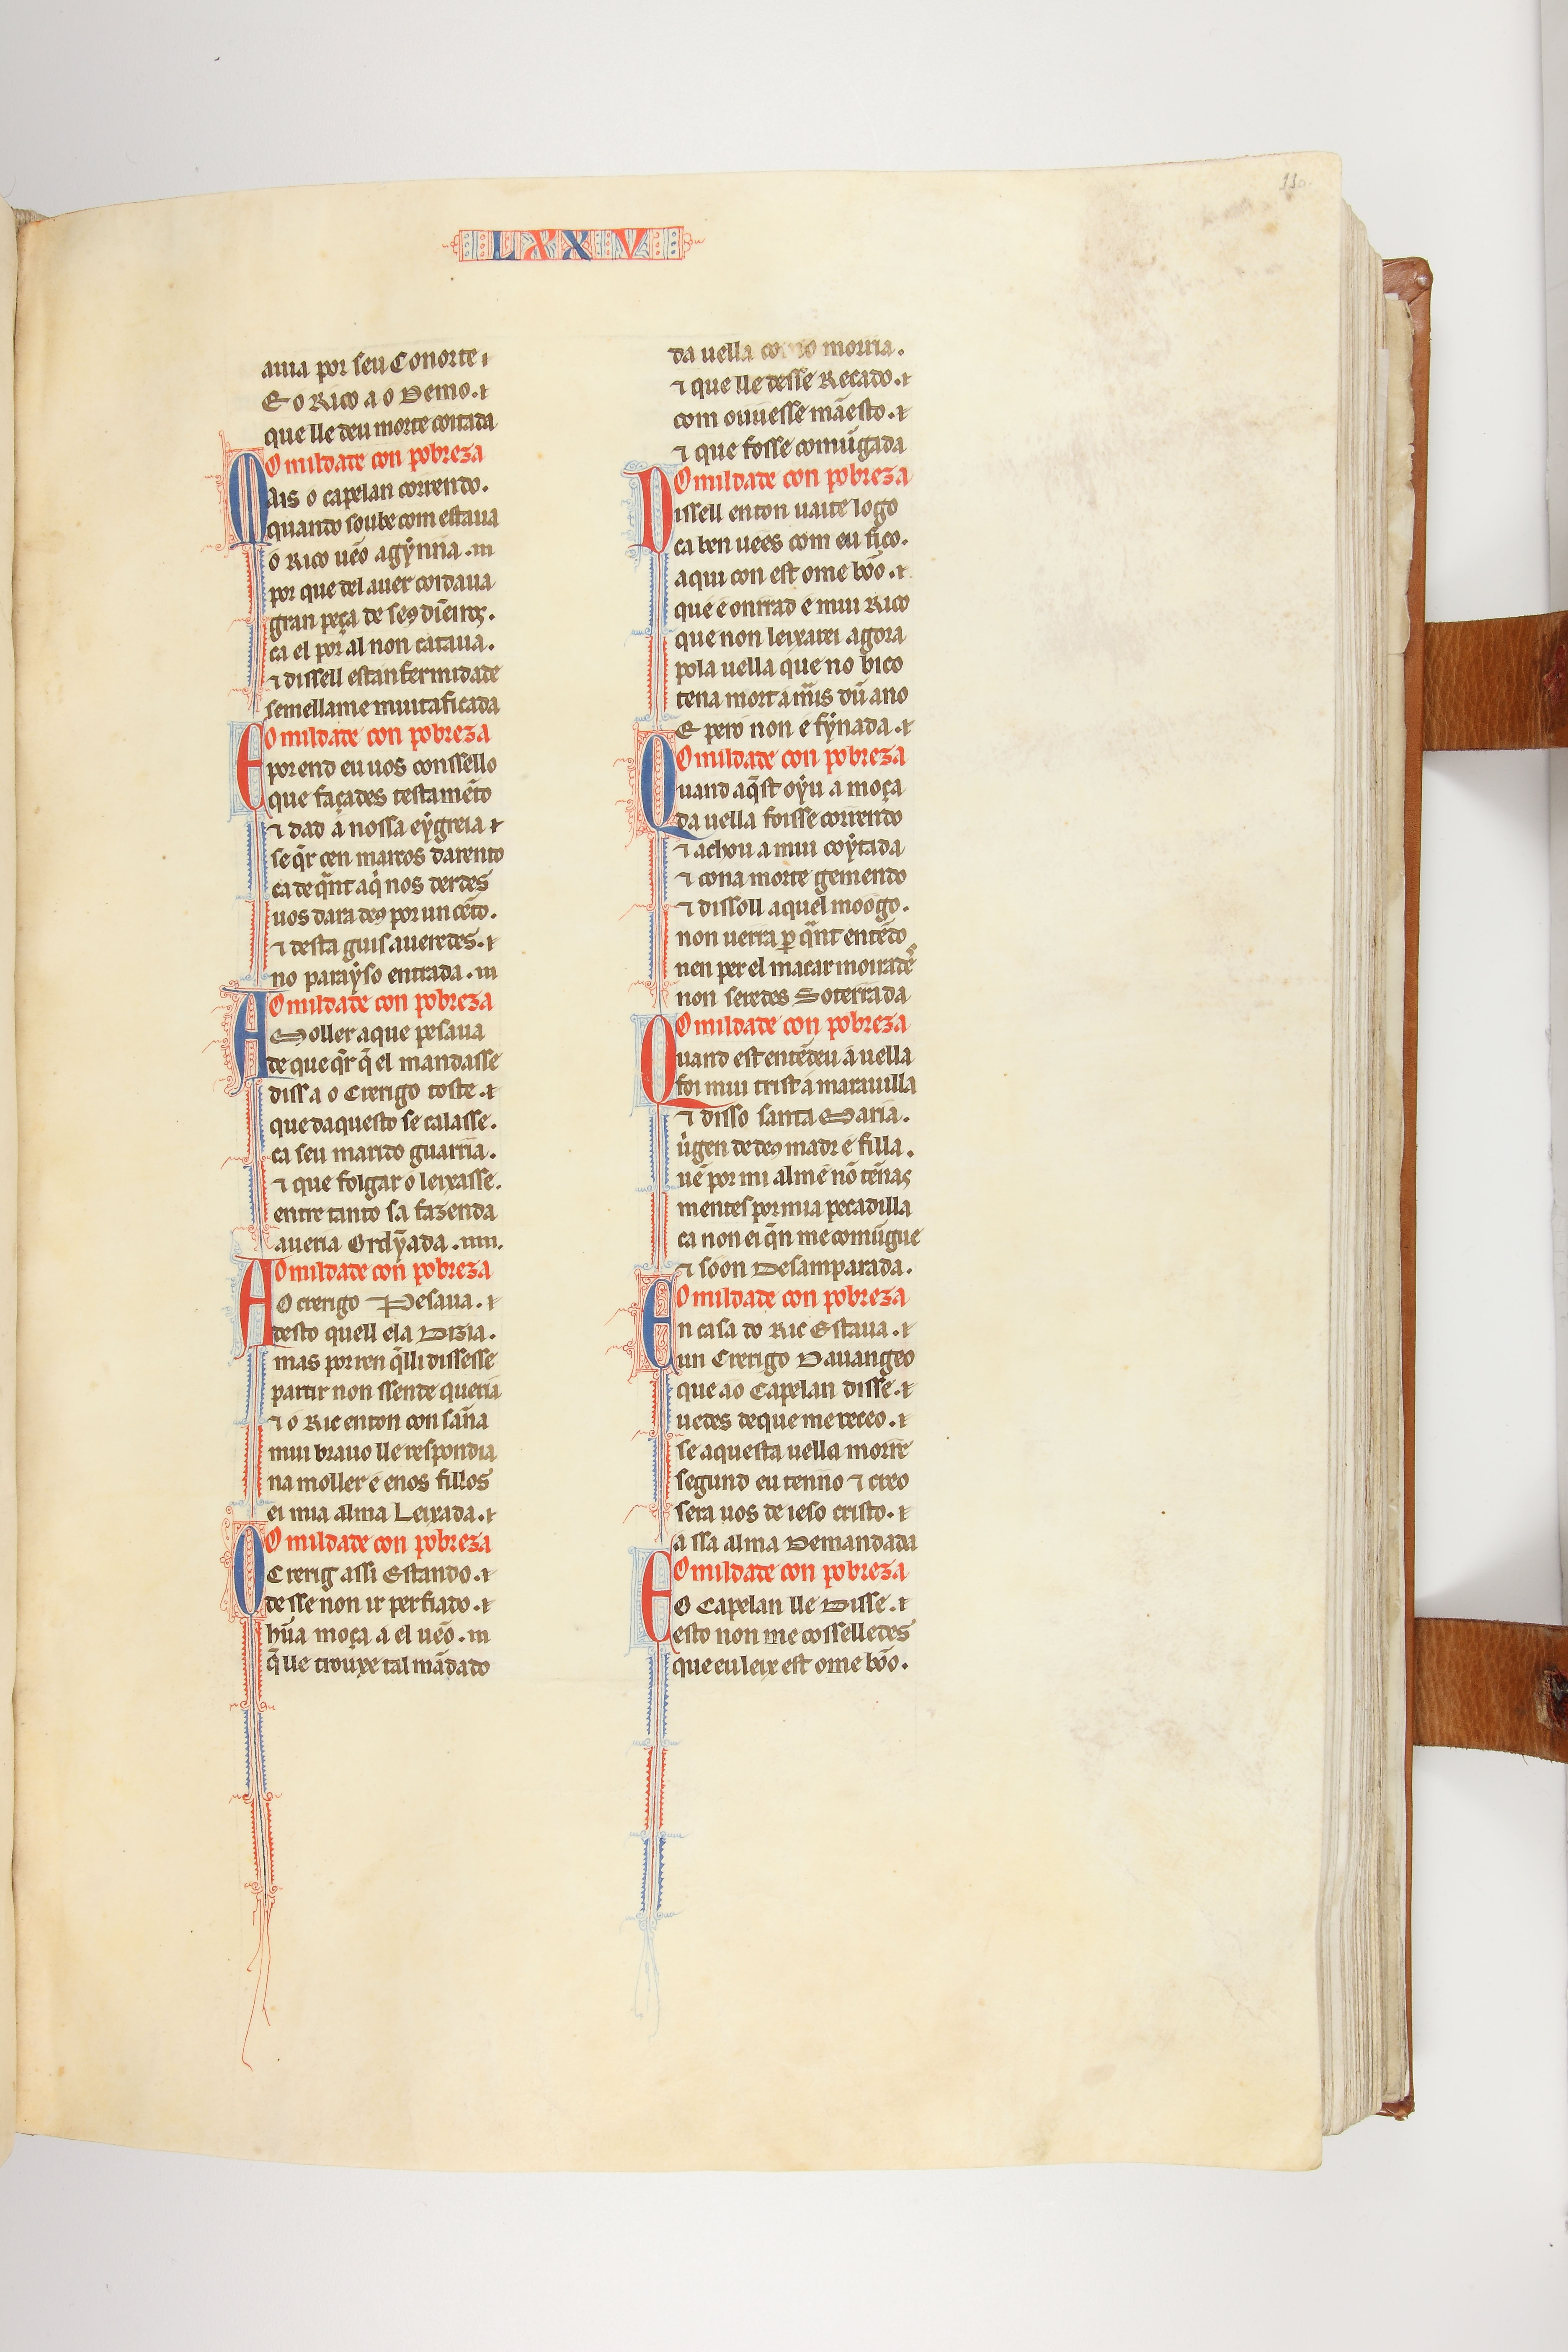 110.
LXXV
auia por seu Conorte ⁊
E o Rico a o Demo. ⁊
que lle deu morte coitada
O mildade con pobreza
Mais o capelan correndo.
quando soube com estaua
o Rico uẽo agỹnna .III
por que del auer coidaua
gran peça de seꝯ dĩeiros.
ca el por al non cataua.
⁊ dissell est anfermidade
semellame muit aficada
O mildade con pobreza
E porend eu uos conssello
que façades testamẽto
⁊ dad á nossa eẏgreia ⁊
se q̃r cen marcos darento
ca de q̃nt aq̇ nos derdes
uos dara deꝯ por un cẽto.
⁊ desta guis aueredes. ⁊
no paraẏso entrada .III
O mildade con pobreza
A Moller a que pesaua
de que q̃r q̃ el mandasse
diss a o Crerigo toste. ⁊
que daquesto se calasse.
ca seu marido guarria.
⁊ que folgar o leixasse.
entre tanto sa fazenda
aueria Ordỹada .IIII.
O mildade con pobreza
A O crerigo Pesaua. ⁊
desto quell ela Dizia.
mas por ren q̃lli dissesse
partir non ssende queria
⁊ o Ric enton con saña
mui brauo lle respondia
na moller e enos fillos
ei mia alma Leixada. ⁊
O mildade con pobreza
O Crerig assi Estando. ⁊
de sse non ir perfiãdo. ⁊
hũa moça a el uẽo .III
q̃ lle trouxe tal mãdado
da uella como morria.
⁊ que lle desse Recado. ⁊
com ouuesse mãefesto. ⁊
⁊ que fosse comũgada
O mildade con pobreza
Dissell enton uaite logo
ca ben uees com eu fico.
aqui con est ome bõo. ⁊
que é onrrad e mui Rico
que non leixarei agora
pola uella que no bico
tena mort á mais dũ ano
E pero non e fỹnada. ⁊
O mildade con pobreza
Quand aq̃st oẏu a moça
da uella foisse correndo
⁊ achou a mui coẏtada
⁊ cona morte gemendo
⁊ dissoll aquel moogo.
non uerra ꝑ q̃nt entẽdo
nen per el macar moirades
non seredes Soterrada
O mildade con pobreza
Quand est entẽdeu á uella
foi mui trist á marauilla
⁊ disso santa Maria.
ũgen de deꝯ madr e filla.
uẽ por mi alm e nõ tẽnas
mentes por mia pecadilla
ca non ei q̃n me comũgue
⁊ sõon Desamparada.
O mildade con pobreza
En casa do Ric Estaua. ⁊
un Crerigo Dauangeo
que ao Capelan disse. ⁊
uedes de que me receo. ⁊
se aquesta uella morre
segund eu tenno ⁊ creo
sera uos de ieso cristo. ⁊
a ssa alma Demandada
O mildade con pobreza
E O Capelan lle Disse. ⁊
esto non me cõsselledes
que eu leix est ome bõo.